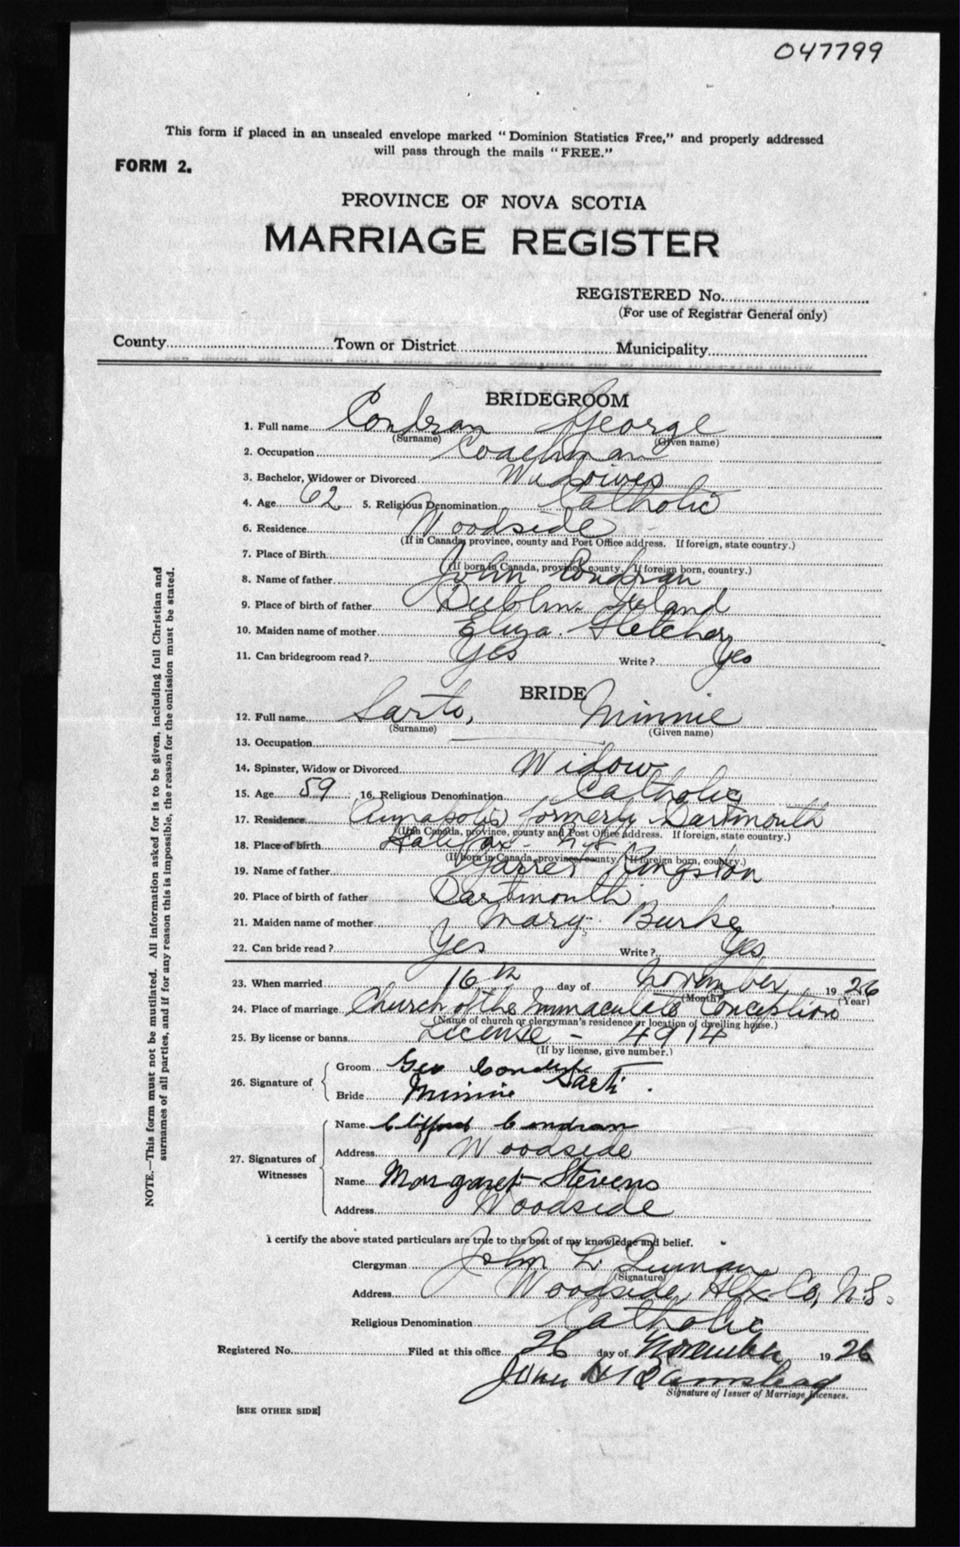 047799
This form if placed in an unsealed envelope marked "Dominion Statistics Free," and properly addressed
will pass through the mails "FREE."
FORM 2.
PROVINCE OF NOVA SCOTIA
MARRIAGE REGISTER
REGISTERED No.
(For use of Registrar General only)
County Town or District Municipality
BRIDEGROOM
1. Full name Condran George
(Surname) (Given name)
2. Occupation Coachman
3. Bachelor, Widower or Divorced Widower
4. Age 62 5. Religious Denomination Catholic
6. Residence Woodside
(If in Canada, province, county and Post Office address. If foreign, state country.)
7. Place of Birth
(If born in Canada, province, county. If foreign born, country.)
8. Name of father John Condran
9. Place of birth of father Dublin. Ireland
10. Maiden name of mother Eliza Fletcher
11. Can bridegroom read? Yes Write? Yes
BRIDE
12. Full name Sarto, Minnie
(Surname) (Given name)
13. Occupation
14. Spinster, Widow or Divorced Widow
15. Age 59 16. Religious Denomination Catholic
17. Residence Annapolis formerly Dartmouth
(If in Canada, province, county and Post Office address. If foreign, state country.)
18. Place of birth Halifax - N.S.
(If born in Canada, province, county. If foreign born, country.)
19. Name of father Garret Kingston
20. Place of birth of father Dartmouth
21. Maiden name of mother Mary Burke
22. Can bride read? Yes Write? Yes
23. When married 16th day of November 1926
(Month) (Year)
24. Place of marriage Church of the Immaculate Conception
(Name of church or clergyman's residence or location of dwelling house.)
25. By license or banns License - 4914
(If by license, give number.)
26. Signature of
Groom Geo Condran
Bride Minnie Sarto
27. Signatures of Witnesses
Name Clifford Condran
Address Woodside
Name Margaret Stevens
Address Woodside
I certify the above stated particulars are true to the best of my knowledge and belief.
Clergyman John L. Quinan
(Signature)
Address Woodside, Hfx Co, N.S.
Religious Denomination Catholic
Registered No. Filed at this office 26 day of November 1926
John H
Signature of Issuer of Marriage Licenses.
[SEE OTHER SIDE]
NOTE.—This form must not be mutilated. All information asked for is to be given, including full Christian and
surnames of all parties, and if for any reason this is impossible, the reason for the omission must be stated.